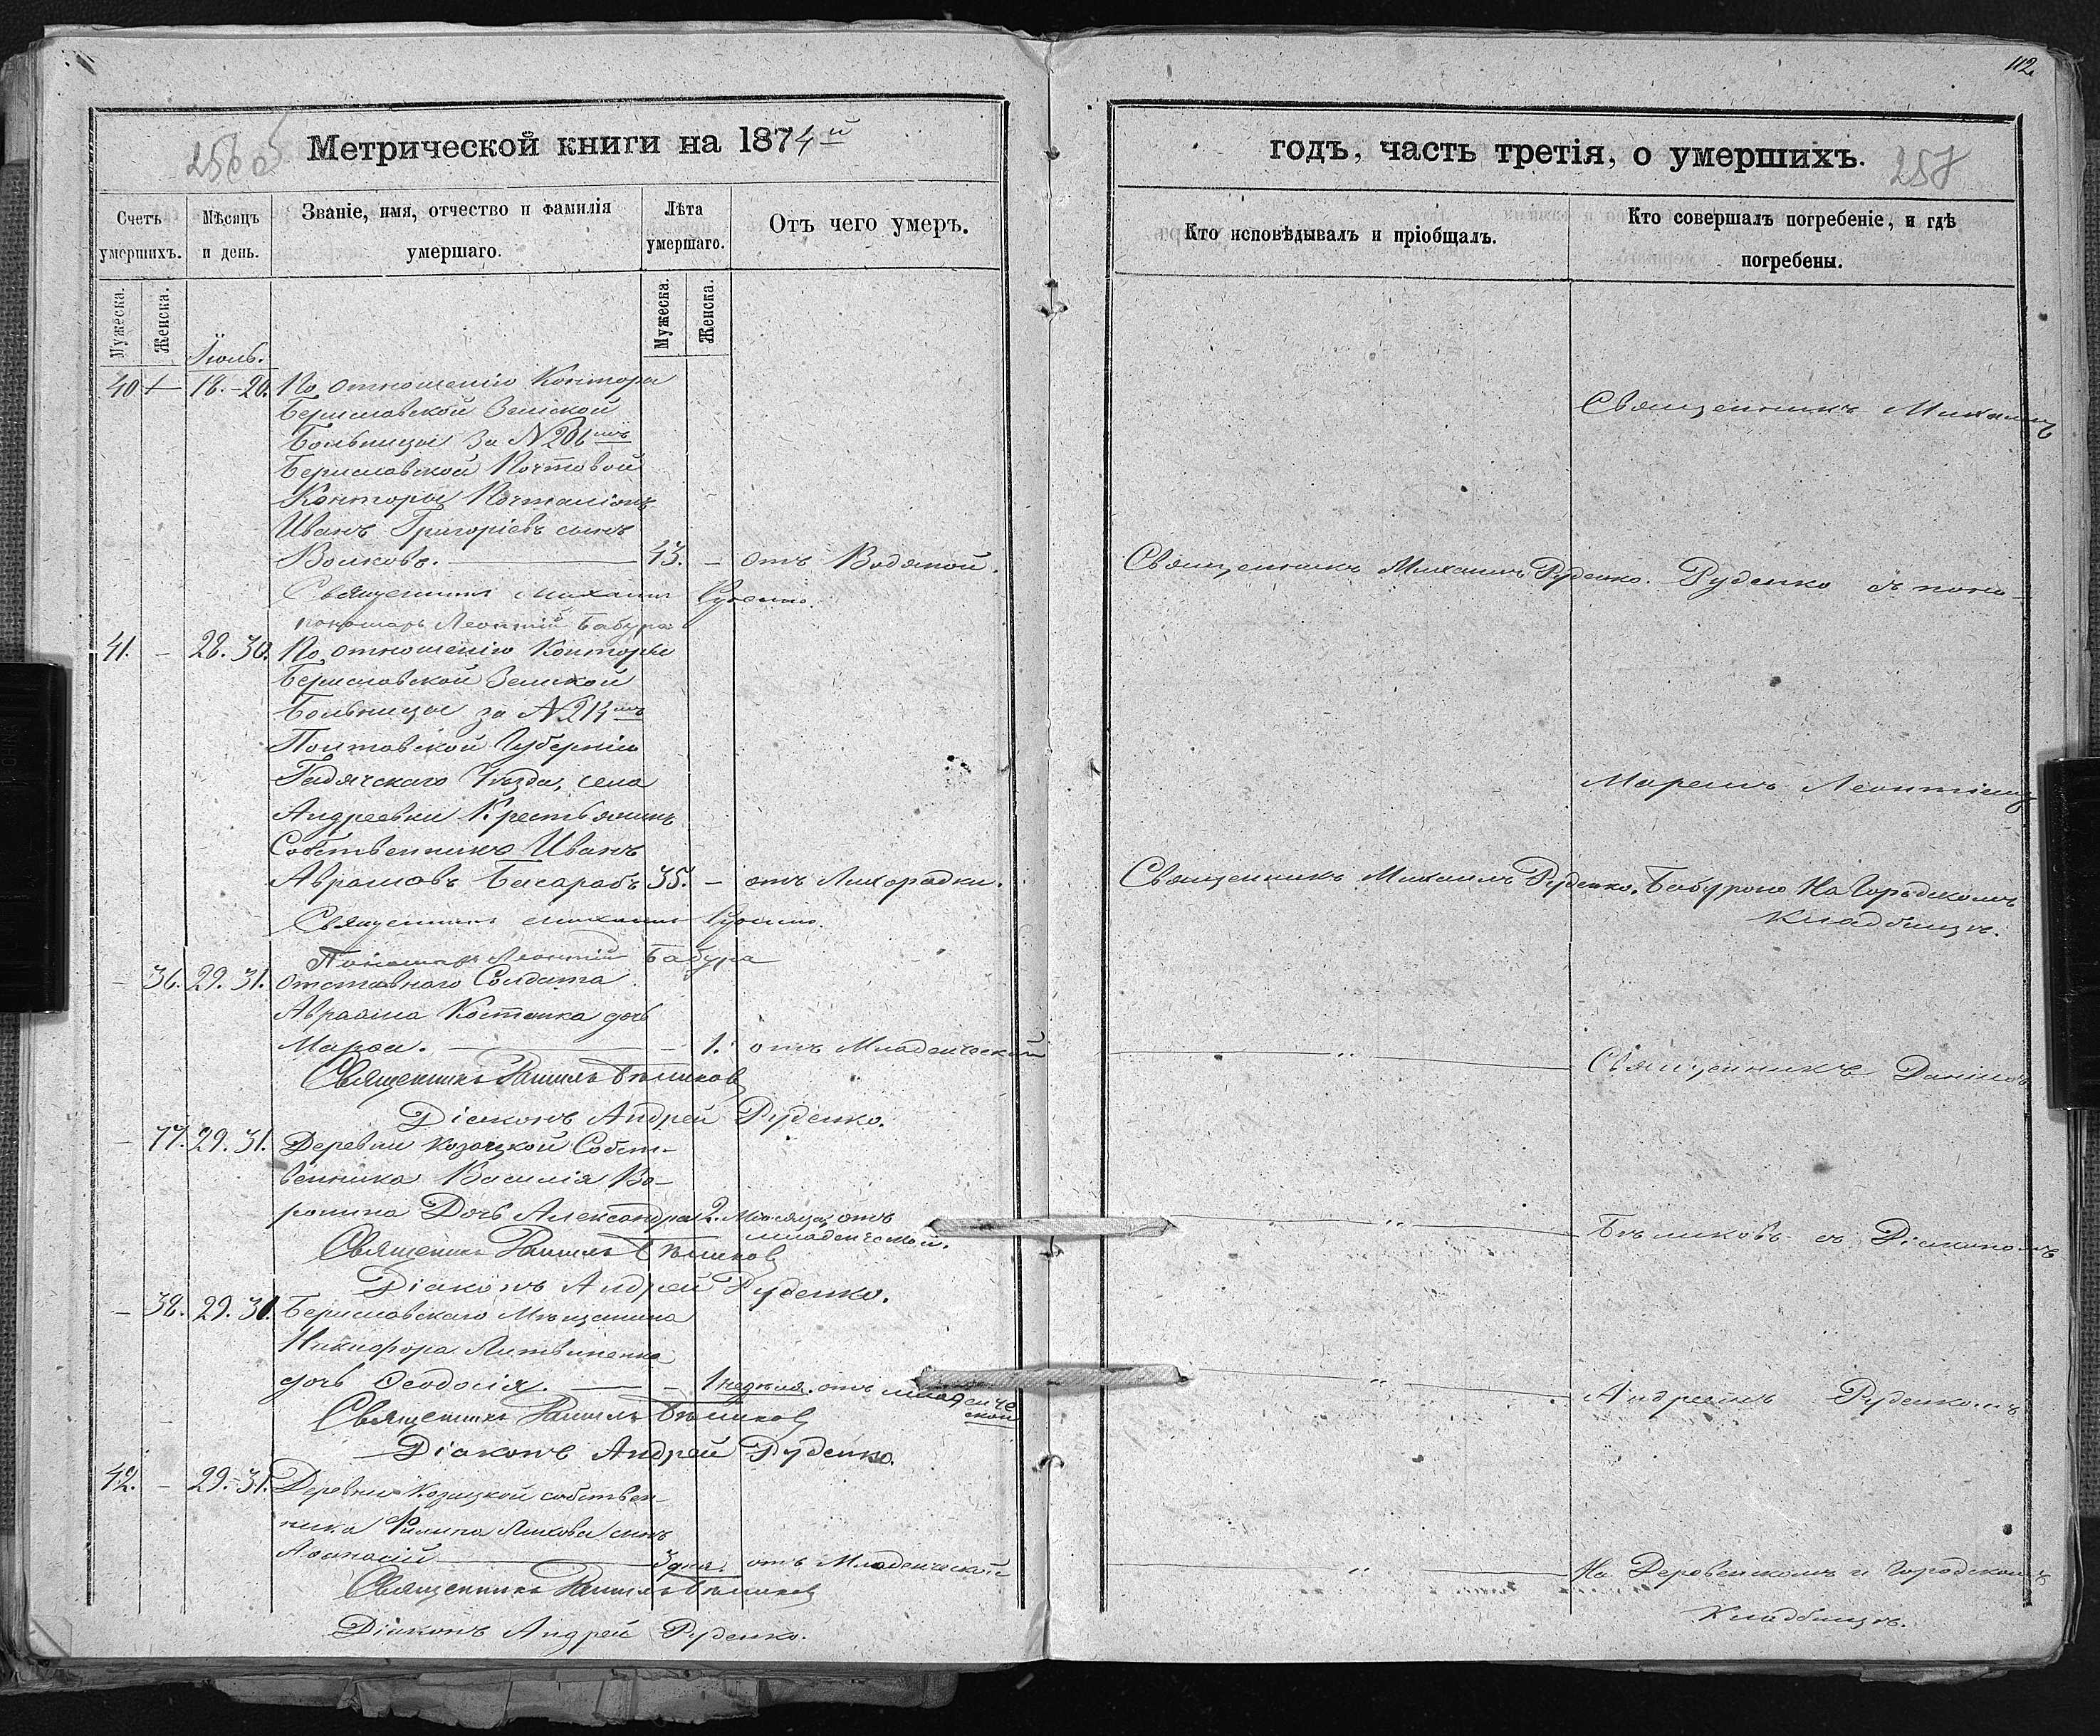 112.
Метрической книги на 1874й
256
Счетъ умершихъ.
Мѣсяцъ и день.
Званіе, имя, отчество и фамилія умершаго.
Лѣта умершаго.
Отъ чего умеръ.
Мужеска.
Женска.
Мужеска.
Женска.
Іюль.
40 18.-20. По отношенію Контора
Бериславской Земской
Больницы за №206мъ
Бериславской Почтовой
Конторы Почталіонъ
Иванъ Григоріевъ сынъ
Волковъ. 43. - отъ Водяной.
Священникъ Михаилъ Руденко.
пономарь Леонтій Бабура
41. - 28. 30. По отношенію Конторы
Бериславской Земской
Больницы за №214мъ
Полтавской Губерніи
Гадячскаго Уѣзда, села
Андреевки Крестьянинъ
Собственникъ Иванъ
Аврамовъ Басарабъ 35. - отъ Лихорадки.
Священникъ Михаилъ Руденко.
Пономарь Леонтій Бабура
- 36. 29. 31. Отставнаго Солдата
Авраама Костенка дочь
Марѳа. - 1. отъ Младенческой
Священникъ Даніилъ Бѣликовъ
Діаконъ Андрей Руденко.
- 77. 29. 31. Деревни Козацкой Собст-
венника Василія Во-
ронина Дочь Александра 2. Мѣсяца, отъ
младенческой.
Священникъ Даніилъ Бѣликовъ
Діаконъ Андрей Руденко.
- 38. 29. 31. Бериславскаго Мѣщанина
Никифора Литвиненка
дочь Ѳеодосія. - 1 недѣля. отъ младенче
ской
Священникъ Даніилъ Бѣликовъ
Діаконъ Андрей Руденко.
42. - 29.-31. Деревни Козацкой собствен-
ника Филипа Ляхова сынъ
Аѳанасій 3 дня. отъ Младенческой
Священникъ Даніилъ Бѣликовъ
Діаконъ Андрей Руденко.
годъ, часть третія, о умершихъ.
257
Кто исповѣдывалъ и пріобщалъ.
Кто совершалъ погребеніе, и гдѣ
погребены.
Священникъ Михаилъ
Священникъ Михаилъ Руденко. Руденко съ поно-
маремъ Леонтіемъ
Священникъ Михаилъ Руденко. Бабурою На Городскомъ
Кладбищѣ.
Священникъ Даніилъ
Бѣликовъ съ Діакономъ
Андреемъ Руденкомъ
На Деревенскомъ и Городскомъ
Кладбищѣ.